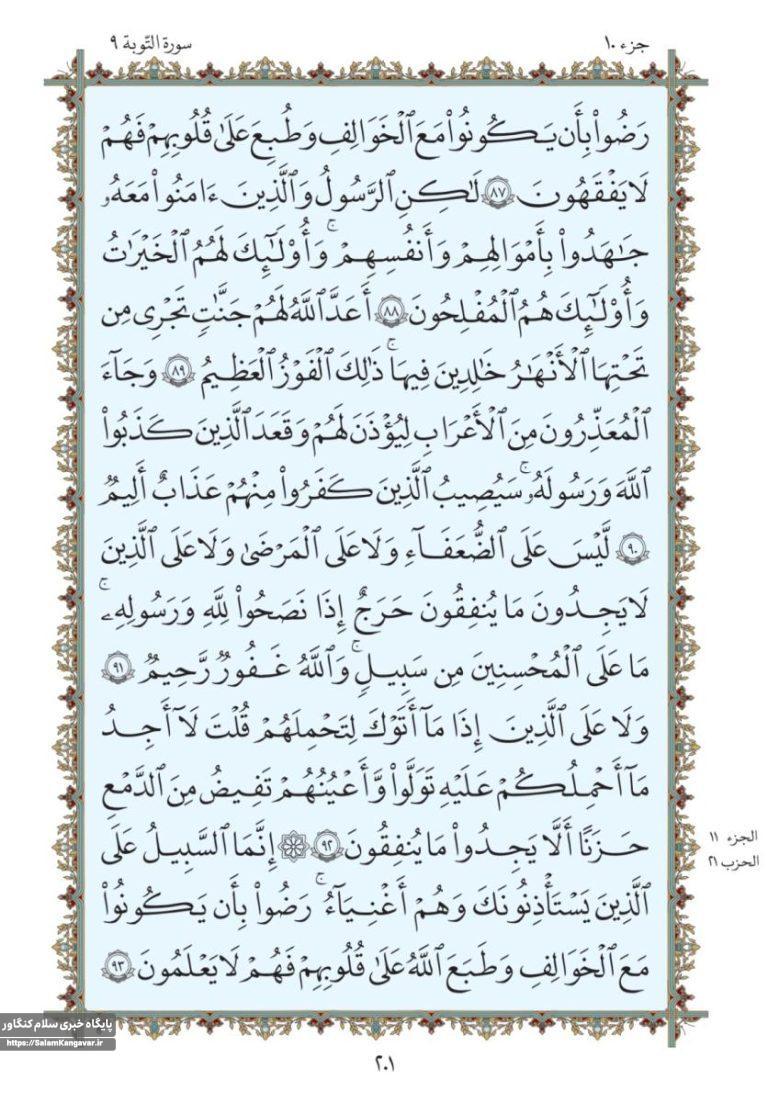 جزء ۱۰
سورة التّوبة ۹
رَضُوا۟ بِأَن يَكُونُوا۟ مَعَ ٱلْخَوَالِفِ وَطُبِعَ عَلَىٰ قُلُوبِهِمْ فَهُمْ
لَا يَفْقَهُونَ ۸۷ لَـٰكِنِ ٱلرَّسُولُ وَٱلَّذِينَ ءَامَنُوا۟ مَعَهُۥ
جَـٰهَدُوا۟ بِأَمْوَٰلِهِمْ وَأَنفُسِهِمْ ۚ وَأُو۟لَـٰٓئِكَ لَهُمُ ٱلْخَيْرَٰتُ
وَأُو۟لَـٰٓئِكَ هُمُ ٱلْمُفْلِحُونَ ۸۸ أَعَدَّ ٱللَّهُ لَهُمْ جَنَّـٰتٍ تَجْرِى مِن
تَحْتِهَا ٱلْأَنْهَـٰرُ خَـٰلِدِينَ فِيهَا ۚ ذَٰلِكَ ٱلْفَوْزُ ٱلْعَظِيمُ ۸۹ وَجَآءَ
ٱلْمُعَذِّرُونَ مِنَ ٱلْأَعْرَابِ لِيُؤْذَنَ لَهُمْ وَقَعَدَ ٱلَّذِينَ كَذَبُوا۟
ٱللَّهَ وَرَسُولَهُۥ ۚ سَيُصِيبُ ٱلَّذِينَ كَفَرُوا۟ مِنْهُمْ عَذَابٌ أَلِيمٌ
۹۰ لَّيْسَ عَلَى ٱلضُّعَفَآءِ وَلَا عَلَى ٱلْمَرْضَىٰ وَلَا عَلَى ٱلَّذِينَ
لَا يَجِدُونَ مَا يُنفِقُونَ حَرَجٌ إِذَا نَصَحُوا۟ لِلَّهِ وَرَسُولِهِۦ ۚ
مَا عَلَى ٱلْمُحْسِنِينَ مِن سَبِيلٍ ۚ وَٱللَّهُ غَفُورٌ رَّحِيمٌ ۹۱
وَلَا عَلَى ٱلَّذِينَ إِذَا مَآ أَتَوْكَ لِتَحْمِلَهُمْ قُلْتَ لَآ أَجِدُ
مَآ أَحْمِلُكُمْ عَلَيْهِ تَوَلَّوا۟ وَّأَعْيُنُهُمْ تَفِيضُ مِنَ ٱلدَّمْعِ
حَزَنًا أَلَّا يَجِدُوا۟ مَا يُنفِقُونَ ۹۲ ۞ إِنَّمَا ٱلسَّبِيلُ عَلَى
ٱلَّذِينَ يَسْتَـْٔذِنُونَكَ وَهُمْ أَغْنِيَآءُ ۚ رَضُوا۟ بِأَن يَكُونُوا۟
مَعَ ٱلْخَوَالِفِ وَطَبَعَ ٱللَّهُ عَلَىٰ قُلُوبِهِمْ فَهُمْ لَا يَعْلَمُونَ ۹۳
الجزء ۱۱
الحزب ۲۱
پایگاه خبری سلام کنگاور
https://SalamKangavar.ir
۲۰۱